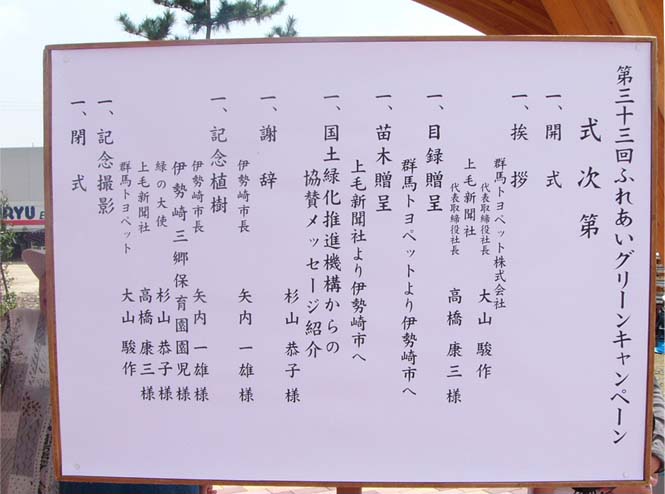 第三十三回ふれあいグリーンキャンペーン
式次第
一、開式
一、挨拶
群馬トヨペット株式会社
代表取締役社長 大山 駿作
上毛新聞社
代表取締役社長 高橋 康三 様
一、目録贈呈
群馬トヨペットより伊勢崎市へ
一、苗木贈呈
上毛新聞社より伊勢崎市へ
一、国土緑化推進機構からの
協賛メッセージ紹介
杉山 恭子 様
一、謝辞
伊勢崎市長 矢内 一雄 様
一、記念植樹
伊勢崎市長 矢内 一雄 様
伊勢崎三郷保育園園児様
緑の大使 杉山 恭子 様
上毛新聞社 高橋 康三 様
群馬トヨペット 大山 駿作
一、記念撮影
一、閉式
RYU